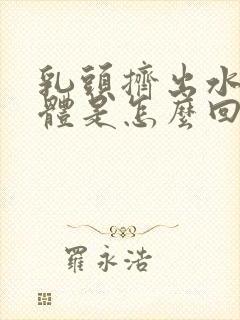 乳頭擠出水
體是怎麼回
羅永浩